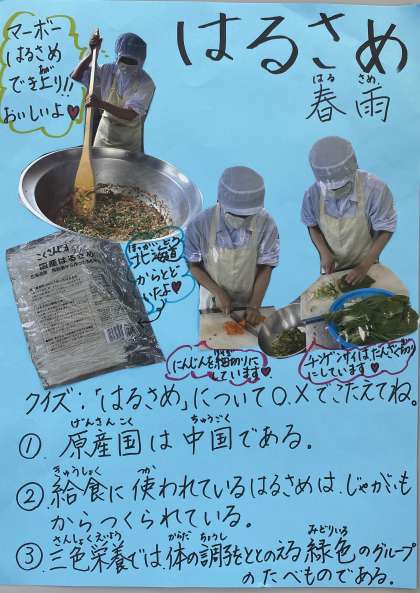 はるさめ
はる さめ
春雨
マーボー
はるさめ
でき上り!!
おいしいよ♥
ほっかいどう
北海道
からとど
いたよ♥
こくさんよう
国産はるさめ
にんじんを細切りに
しています♥
チンゲンサイはたんざく切り
にしています♥
クイズ:「はるさめ」について○,×でこたえてね。
げんさんこく ちゅうごく
①.原産国は中国である。
きゅうしょく つか
②.給食に使われているはるさめは、じゃがいも
からつくられている。
さんしょくえいよう からだ ちょうし みどりいろ
③.三色栄養では、体の調子をととのえる緑色のグループ
のたべものである。